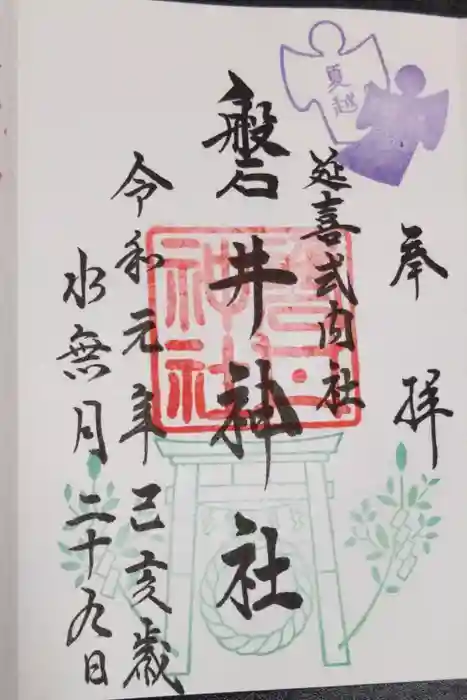 夏越
奉拝
延喜式内社
磐井神社
磐井神社
令和元年己亥歳
水無月二十九日